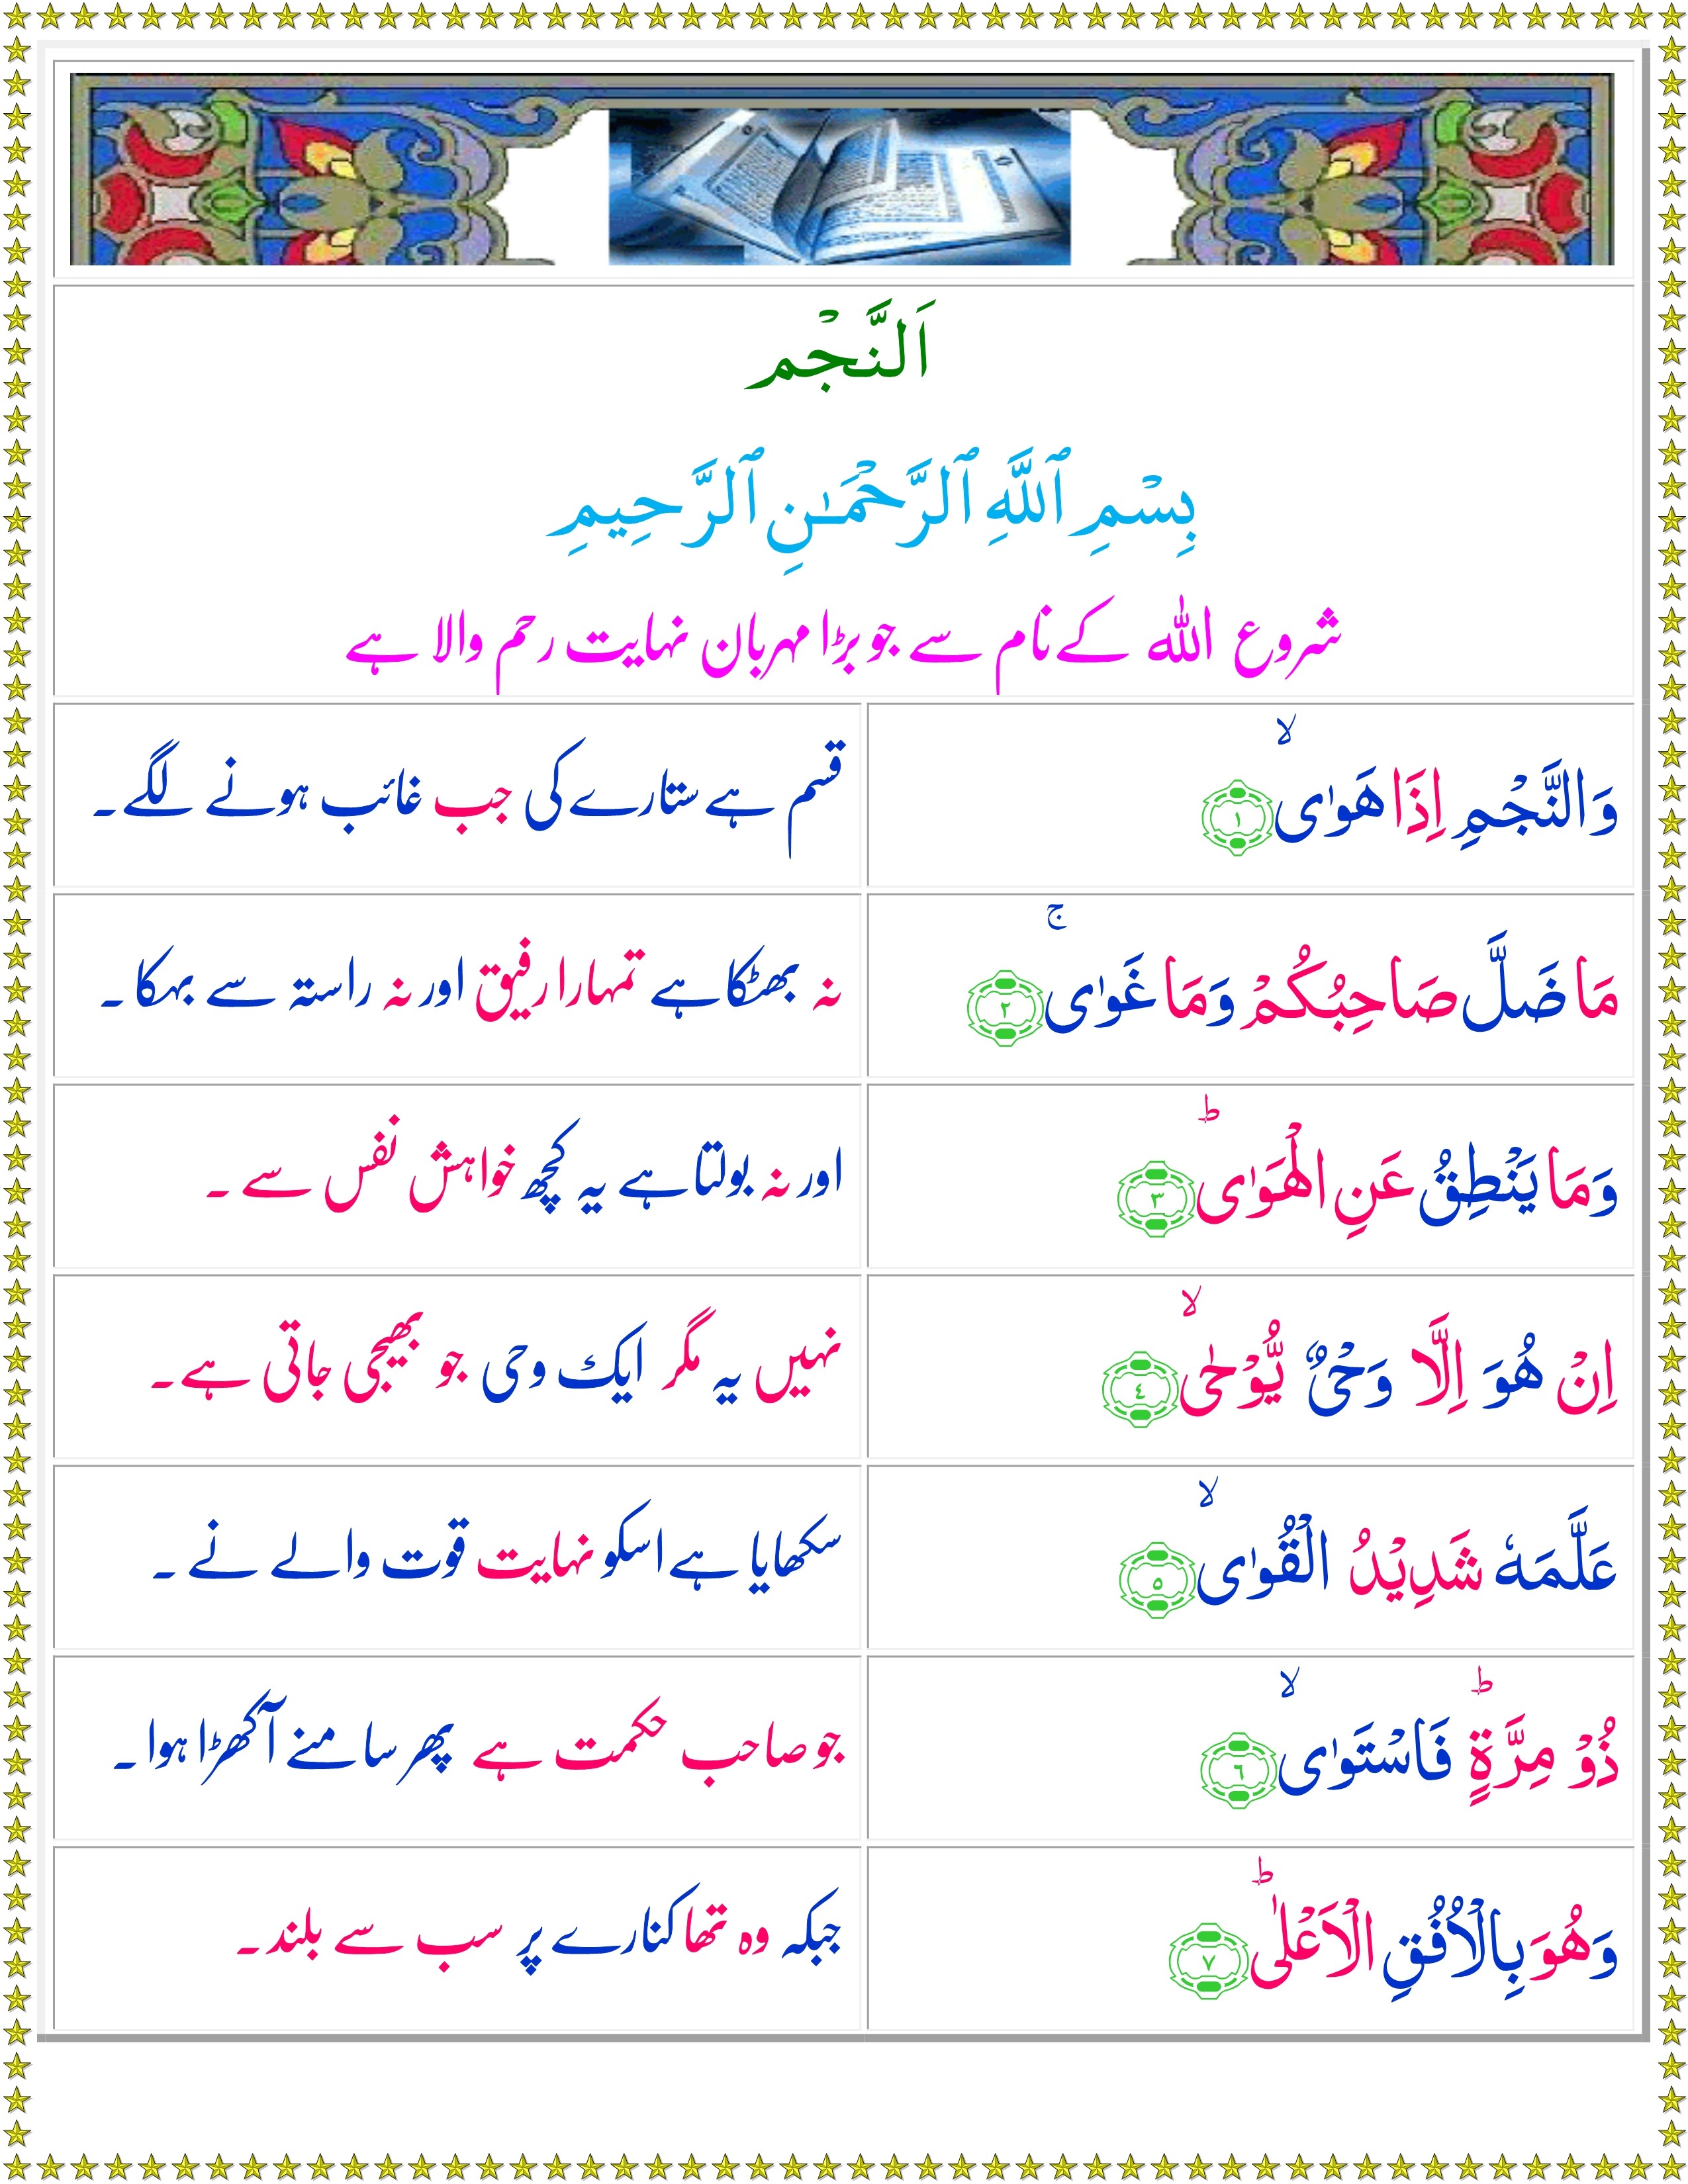 اَلنَّجْم
بِسْمِ ٱللَّهِ ٱلرَّحْمَـٰنِ ٱلرَّحِيمِ
شروع اللہ کے نام سے جو بڑا مہربان نہایت رحم والا ہے
وَالنَّجْمِ اِذَا هَوٰىۙ‏ ﴿۱﴾
قسم ہے ستارے کی جب غائب ہونے لگے۔
مَا ضَلَّ صَاحِبُكُمْ وَمَا غَوٰىۚ‏ ﴿۲﴾
نہ بھٹکا ہے تمہارا رفیق اور نہ راستہ سے بہکا۔
وَمَا يَنْطِقُ عَنِ الْهَوٰىؕ‏ ﴿۳﴾
اور نہ بولتا ہے یہ کچھ خواہش نفس سے ۔
اِنْ هُوَ اِلَّا وَحْىٌ يُّوْحٰىۙ‏ ﴿٤﴾
نہیں یہ مگر ایک وحی جو بھیجی جاتی ہے۔
عَلَّمَهٗ شَدِيْدُ الْقُوٰىۙ‏ ﴿۵﴾
سکھایا ہے اسکو نہایت قوت والے نے ۔
ذُوْ مِرَّةٍؕ فَاسْتَوٰىۙ‏ ﴿٦﴾
جو صاحب حکمت ہے پھر سامنے آکھڑا ہوا۔
وَهُوَ بِالْاُفُقِ الْاَعْلٰىؕ‏ ﴿۷﴾
جبکہ وہ تھا کنارے پر سب سے بلند۔